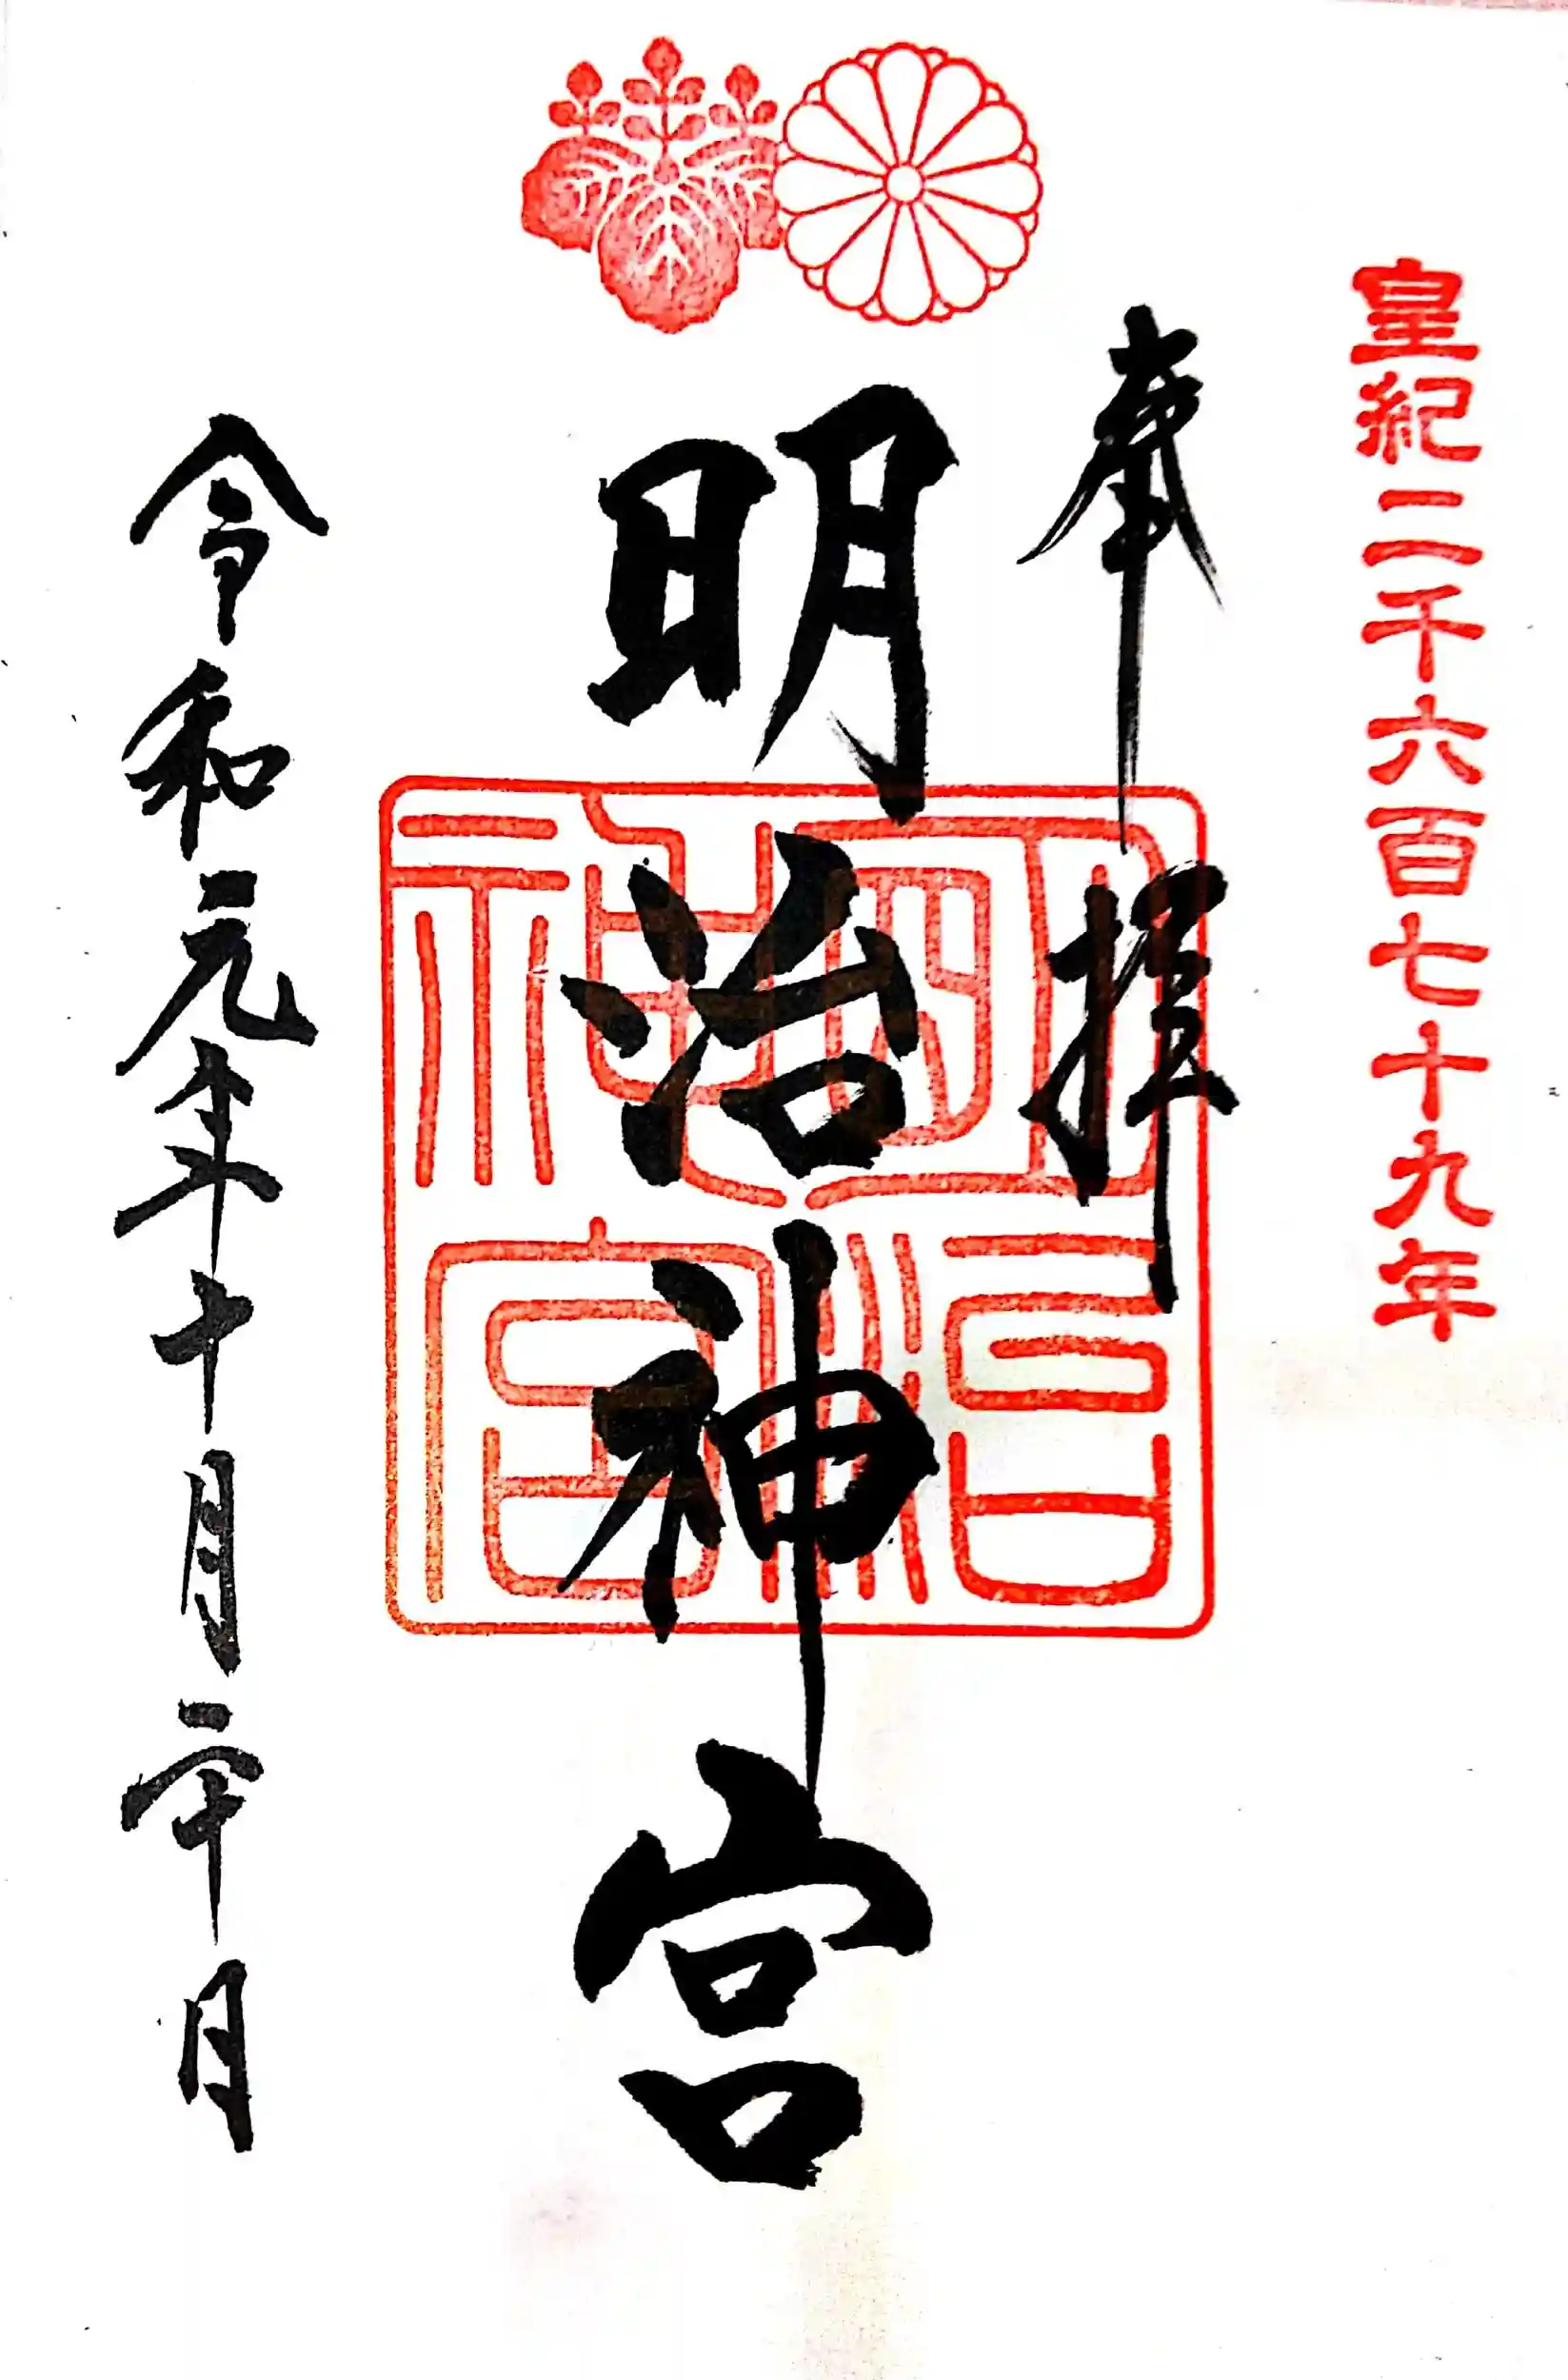 皇紀二千六百七十九年
奉拝
明治神宮
明治
神宮
令和元年十月